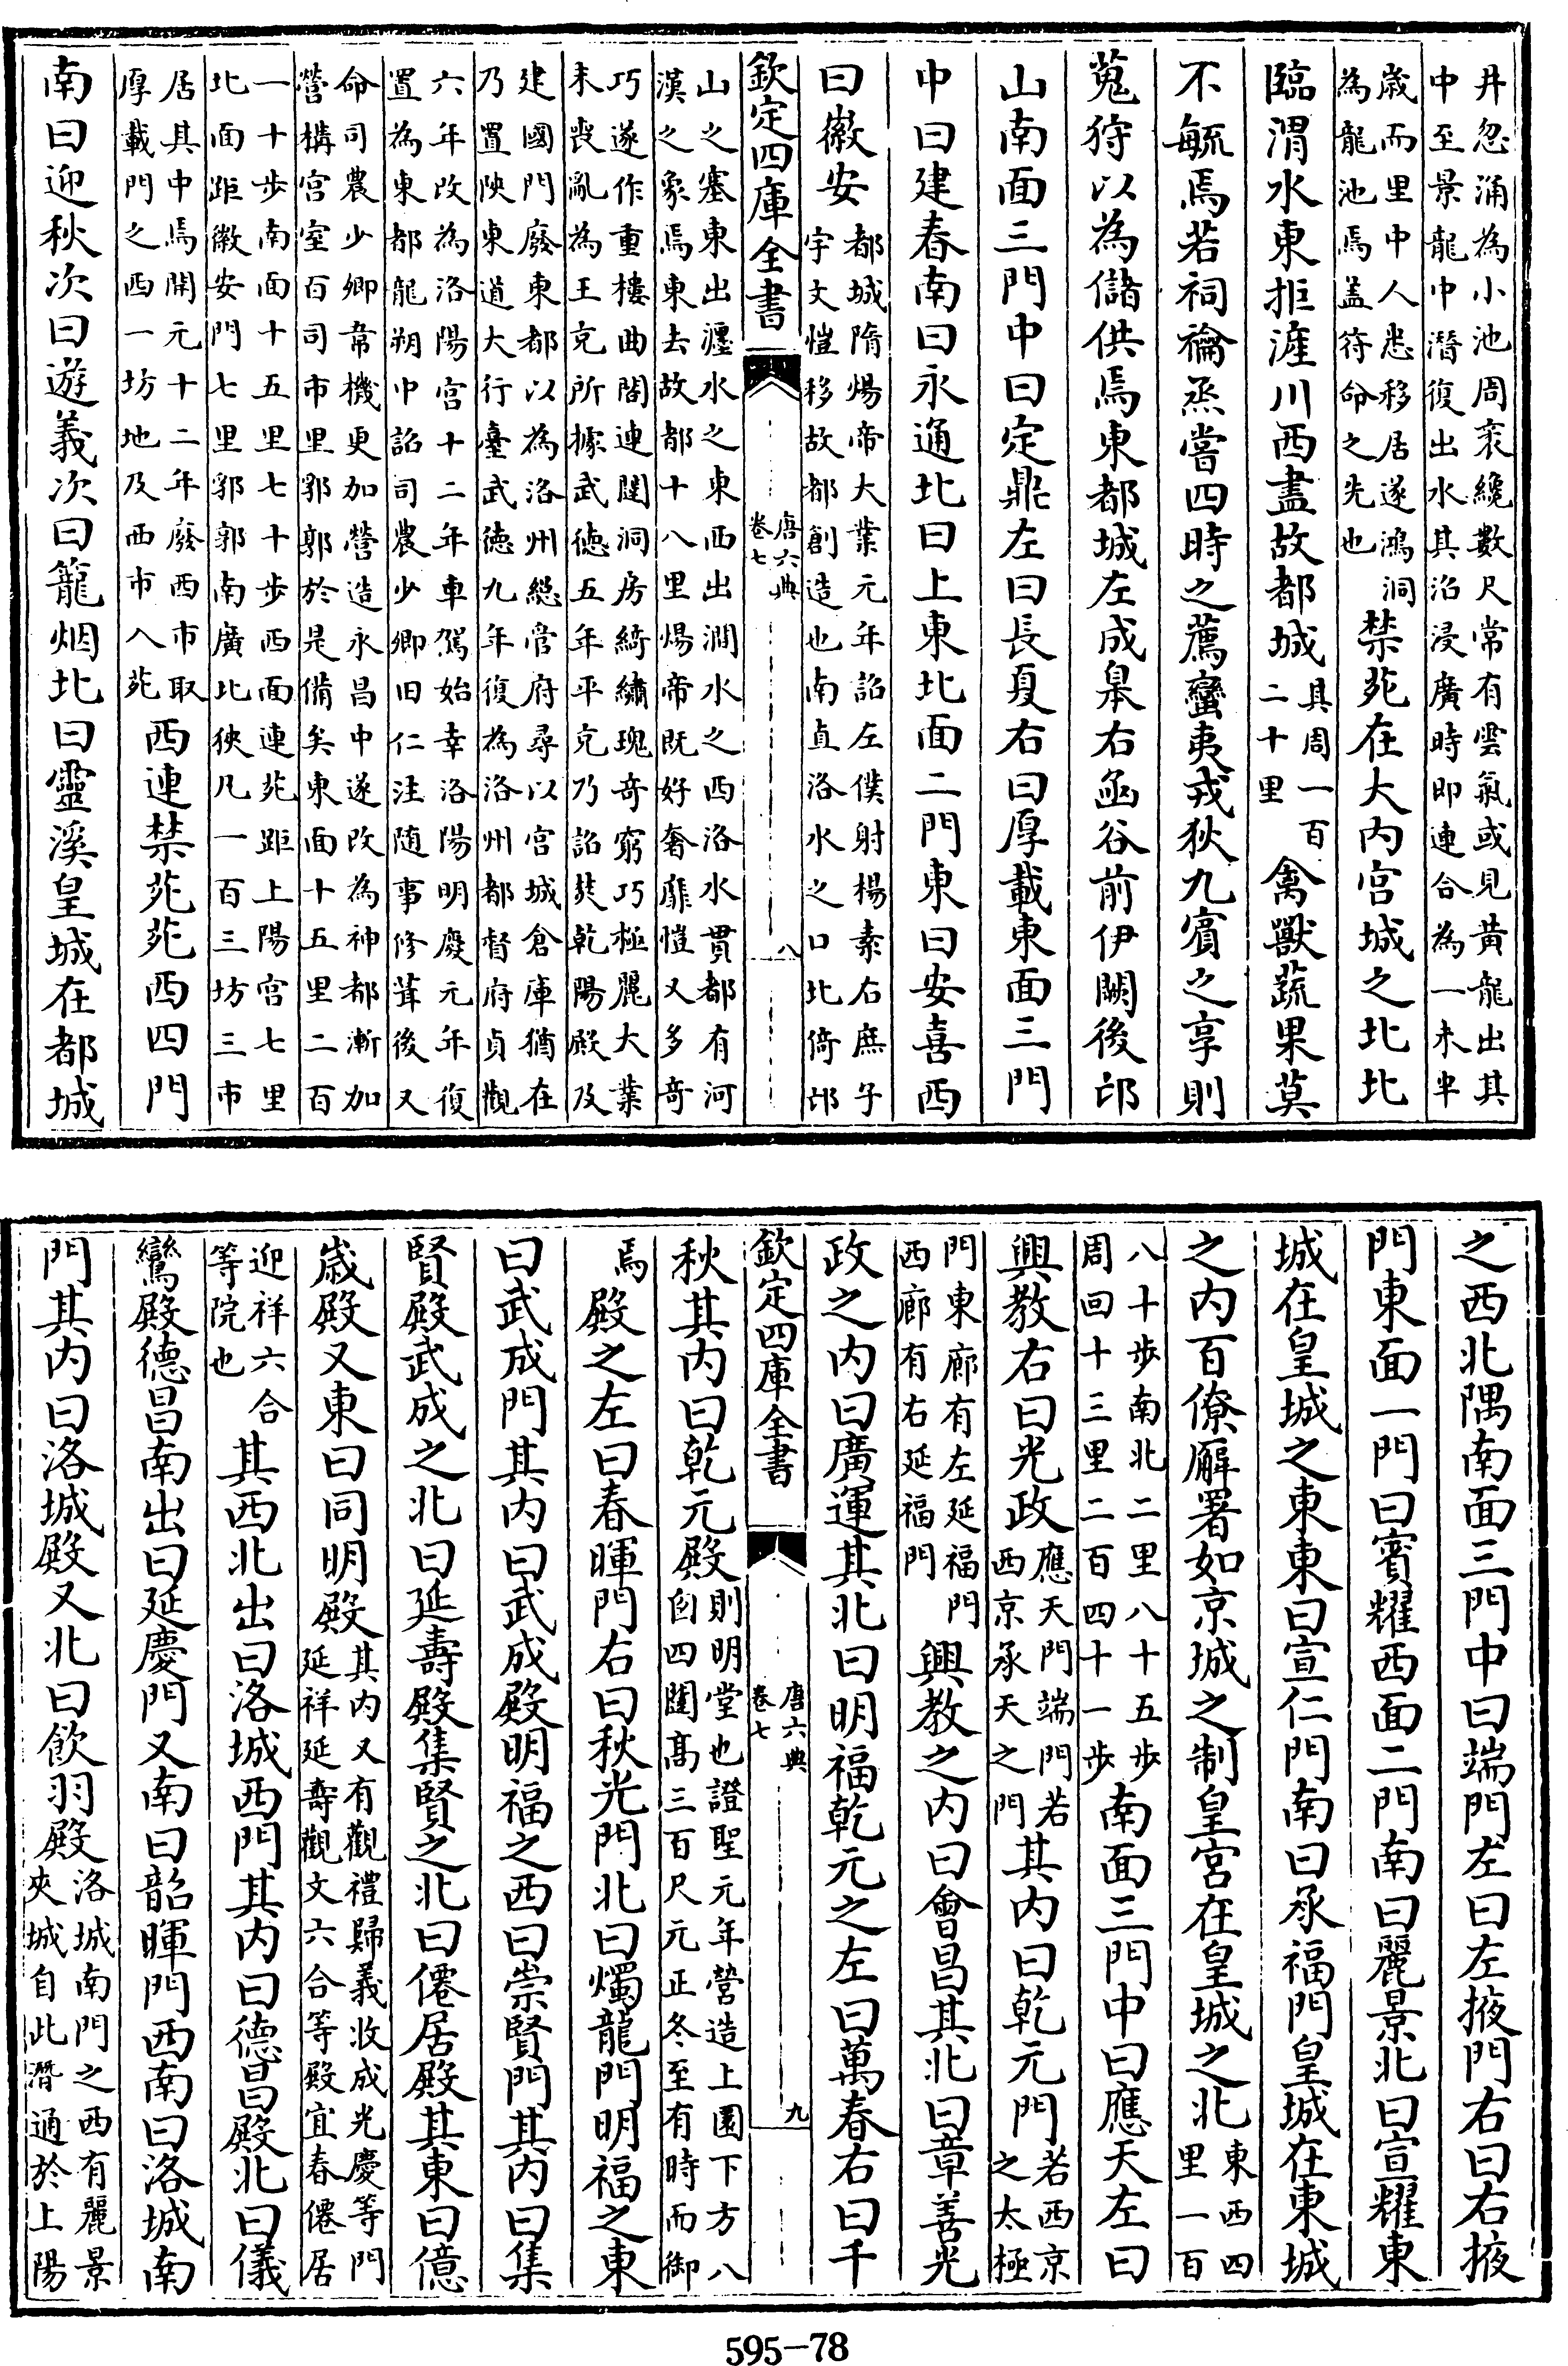 井忽涌為小池周袤纔數尺常有雲氣或見黃龍出其
中至景龍中潛復出水其沼浸廣時即連合為一未半
歲而里中人悉移居遂鴻洞
為龍池焉盖符命之先也
禁苑在大内宫城之北北
臨渭水東拒滻川西盡故都城
具周一百
二十里
禽獸蔬果莫
不毓焉若祠禴烝嘗四時之薦蠻夷戎狄九賓之享則
蒐狩以為儲供焉東都城左成臯右函谷前伊闕後邙
山南面三門中曰定鼎左曰長夏右曰厚載東面三門
中曰建春南曰永通北曰上東北面二門東曰安喜西
曰徽安
都城隋煬帝大業元年詔左僕射楊素右庶子
宇文愷移故都創造也南直洛水之口北倚邙
欽定四庫全書
唐六典
卷七
八
山之塞東出瀍水之東西出澗水之西洛水貫都有河
漢之象焉東去故都十八里煬帝既好奢靡愷又多奇
巧遂作重樓曲閣連闥洞房綺繡瑰奇窮巧極麗大業
末喪亂為王充所據武徳五年平充乃詔焚乾陽殿及
建國門廢東都以為洛州總管府尋以宫城倉庫猶在
乃置陜東道大行臺武徳九年復為洛州都督府貞觀
六年改為洛陽宫十二年車駕始幸洛陽明慶元年復
置為東都龍朔中詔司農少卿田仁汪随事修葺後又
命司農少卿韋機更加營造永昌中遂改為神都漸加
營構宫室百司市里郭郭於是備矣東面十五里二百
一十步南面十五里七十步西面連苑距上陽宫七里
北面距徽安門七里郭郭南廣北狹凡一百三坊三市
居其中焉開元十二年廢西市取
厚載門之西一坊地及西市入苑
西連禁苑苑西四門
南曰迎秋次曰遊義次曰籠烟北曰靈溪皇城在都城
之西北隅南面三門中曰端門左曰左掖門右曰右掖
門東面一門曰賓耀西面二門南曰麗景北曰宣耀東
城在皇城之東東曰宣仁門南曰承福門皇城在東城
之内百僚廨署如京城之制皇宮在皇城之北
東西四
里一百
八十步南北二里八十五步
周回十三里二百四十一步
南面三門中曰應天左曰
興教右曰光政
應天門端門若
西京承天之門
其内曰乾元門
若西京
之太極
門東廊有左延福門
西廊有右延福門
興教之内曰會昌其北曰章善光
政之内曰廣運其北曰明福乾元之左曰萬春右曰千
欽定四庫全書
唐六典
卷七
九
秋其内曰乾元殿
則明堂也證聖元年營造上圓下方八
囪四闥髙三百尺元正冬至有時而御
焉
殿之左曰春暉門右曰秋光門北曰燭龍門明福之東
曰武成門其内曰武成殿明福之西曰崇賢門其内曰集
賢殿武成之北曰延壽殿集賢之北曰僊居殿其東曰億
歲殿又東曰同明殿
其内又有觀禮歸義收成光慶等門
延祥延壽觀文六合等殿宜春僊居
迎祥六合
等院也
其西北出曰洛城西門其内曰徳昌殿北曰儀
鸞殿德昌南出曰延慶門又南曰韶暉門西南曰洛城南
門其内曰洛城殿又北曰飲羽殿
洛城南門之西有麗景
夾城自此潛通於上陽
595-78